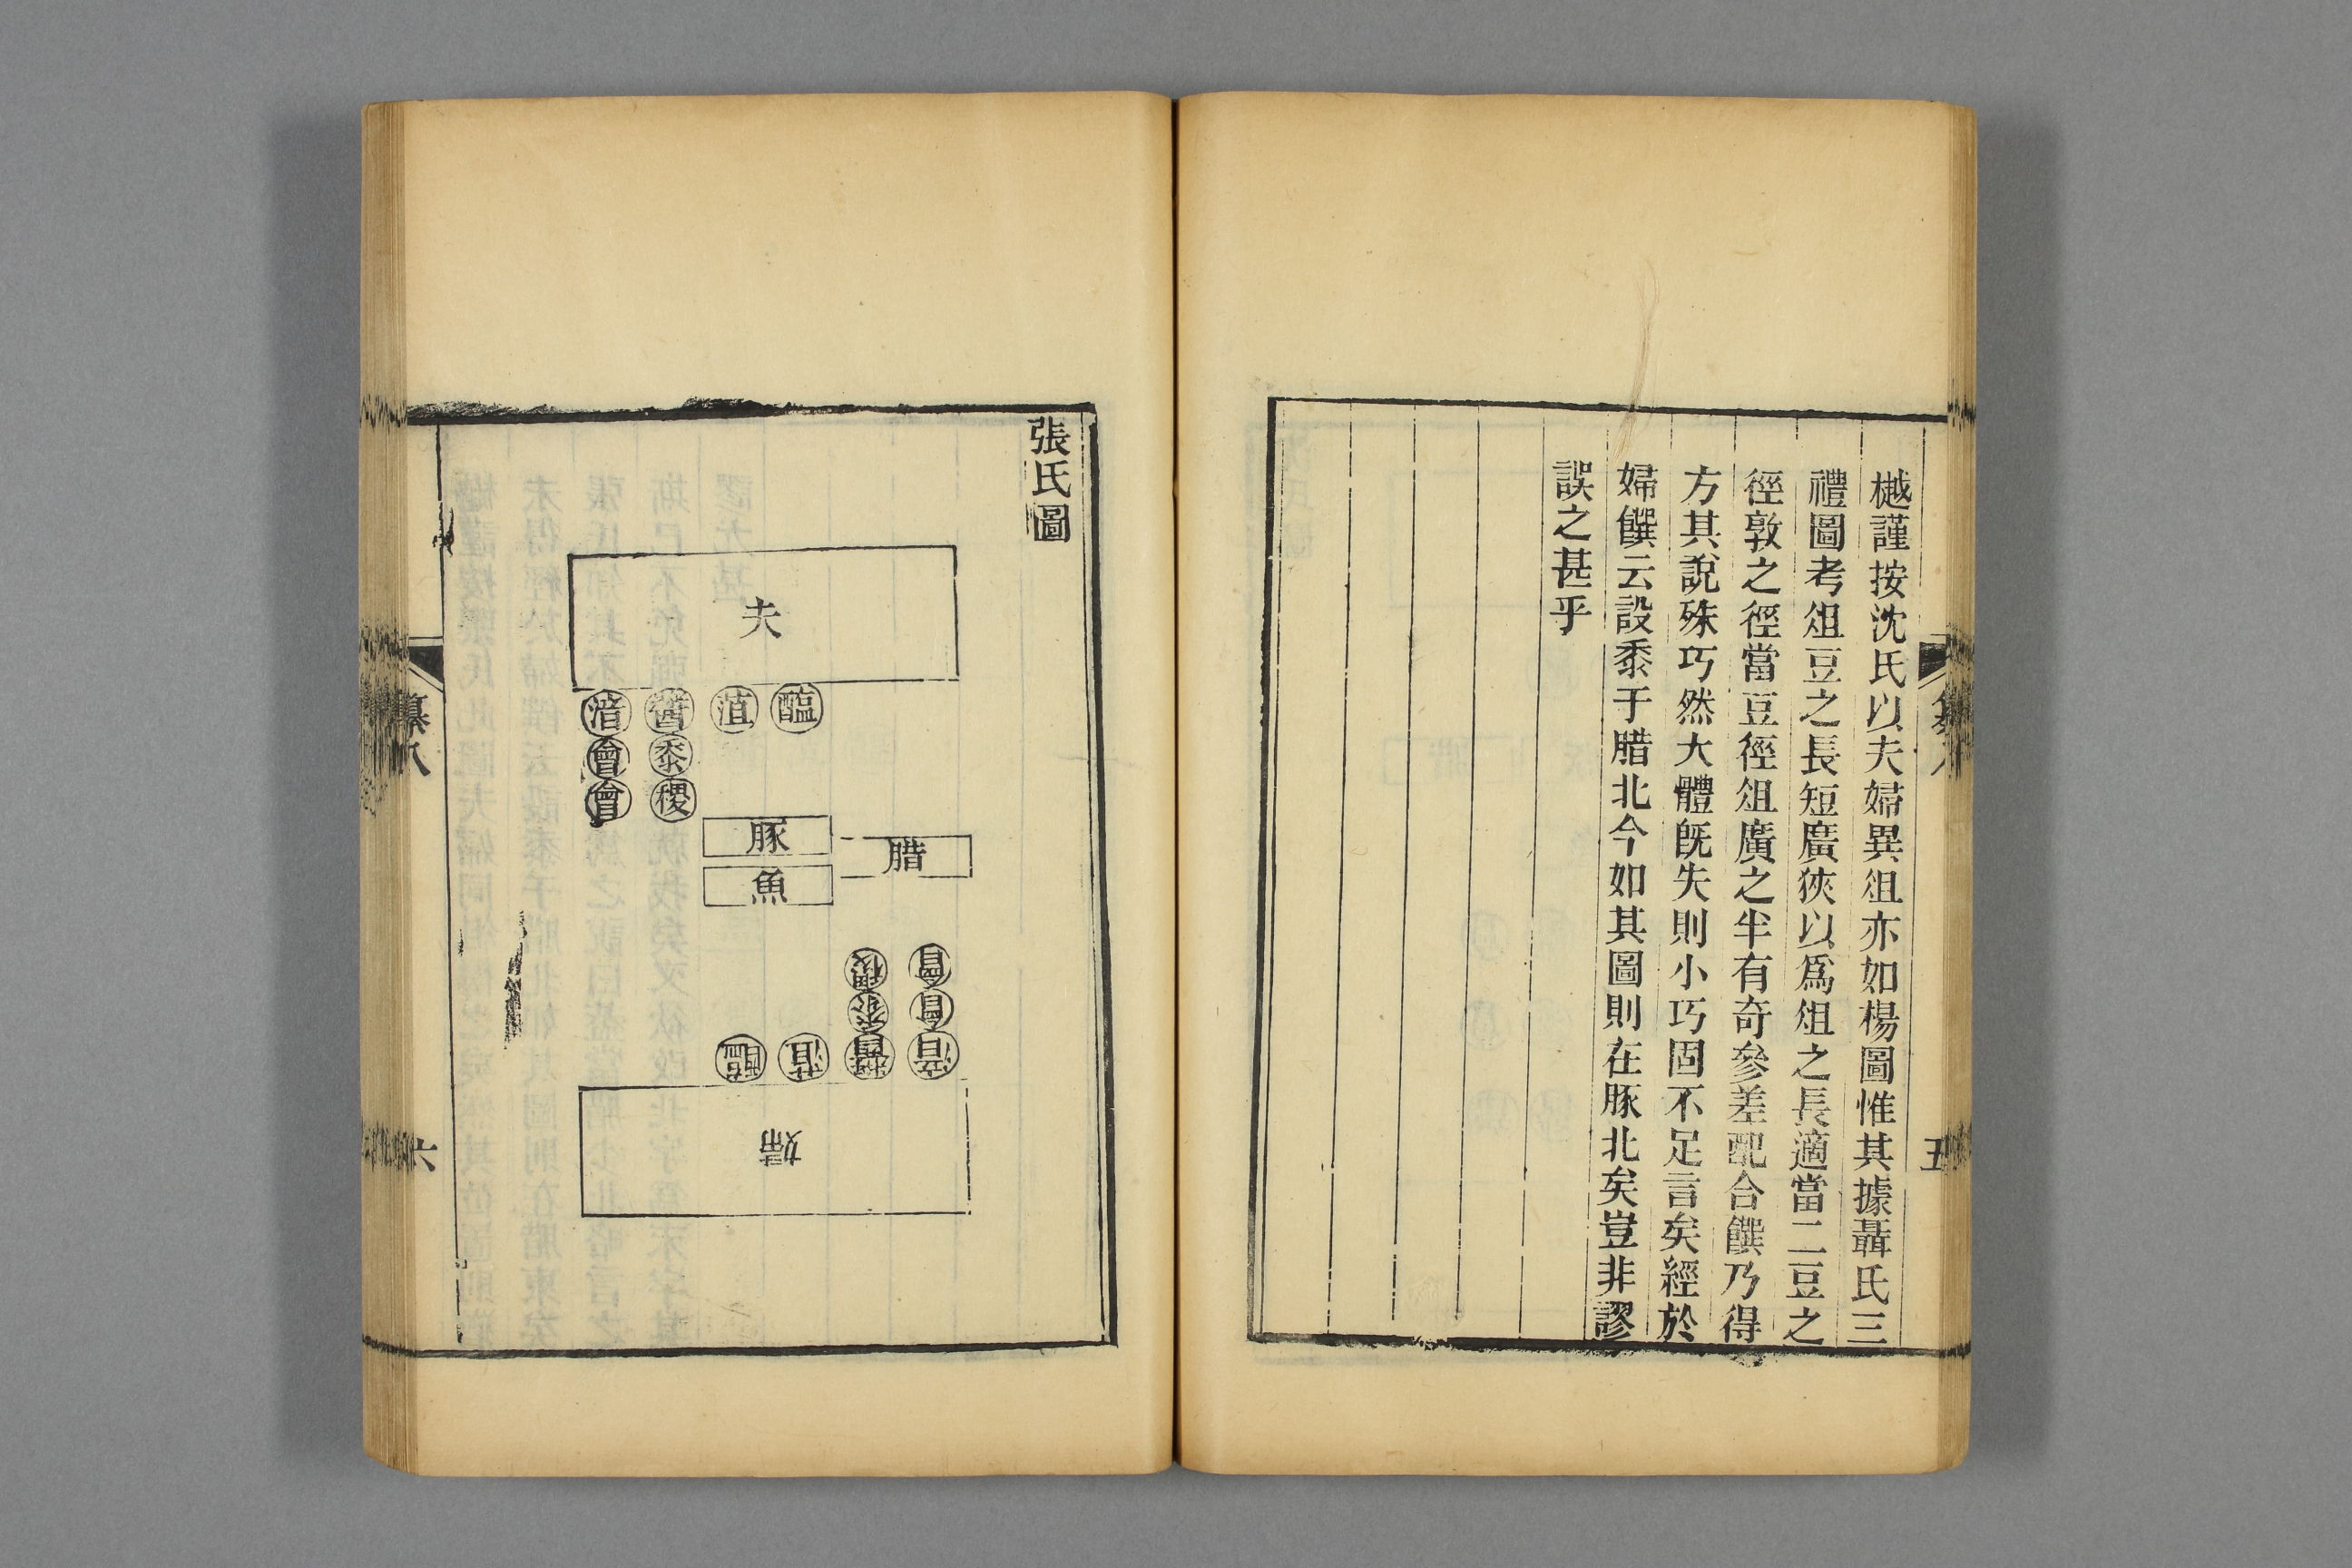 樾謹按沈氏以夫婦異俎亦如楊圖惟其據聶氏三
禮圖考俎豆之長短廣狹以爲俎之長適當二豆之
徑敦之徑當豆徑俎廣之半有奇參差配合饌乃得
方其說殊巧然大體旣失則小巧固不足言矣經於
婦饌云設黍于腊北今如其圖則在豚北矣豈非謬
誤之甚乎
五
張氏圖
夫
醢
菹
醬
湆
黍
會
稷
會
豚
腊
魚
稷
會
黍
會
醢
菹
醬
湆
婦
六